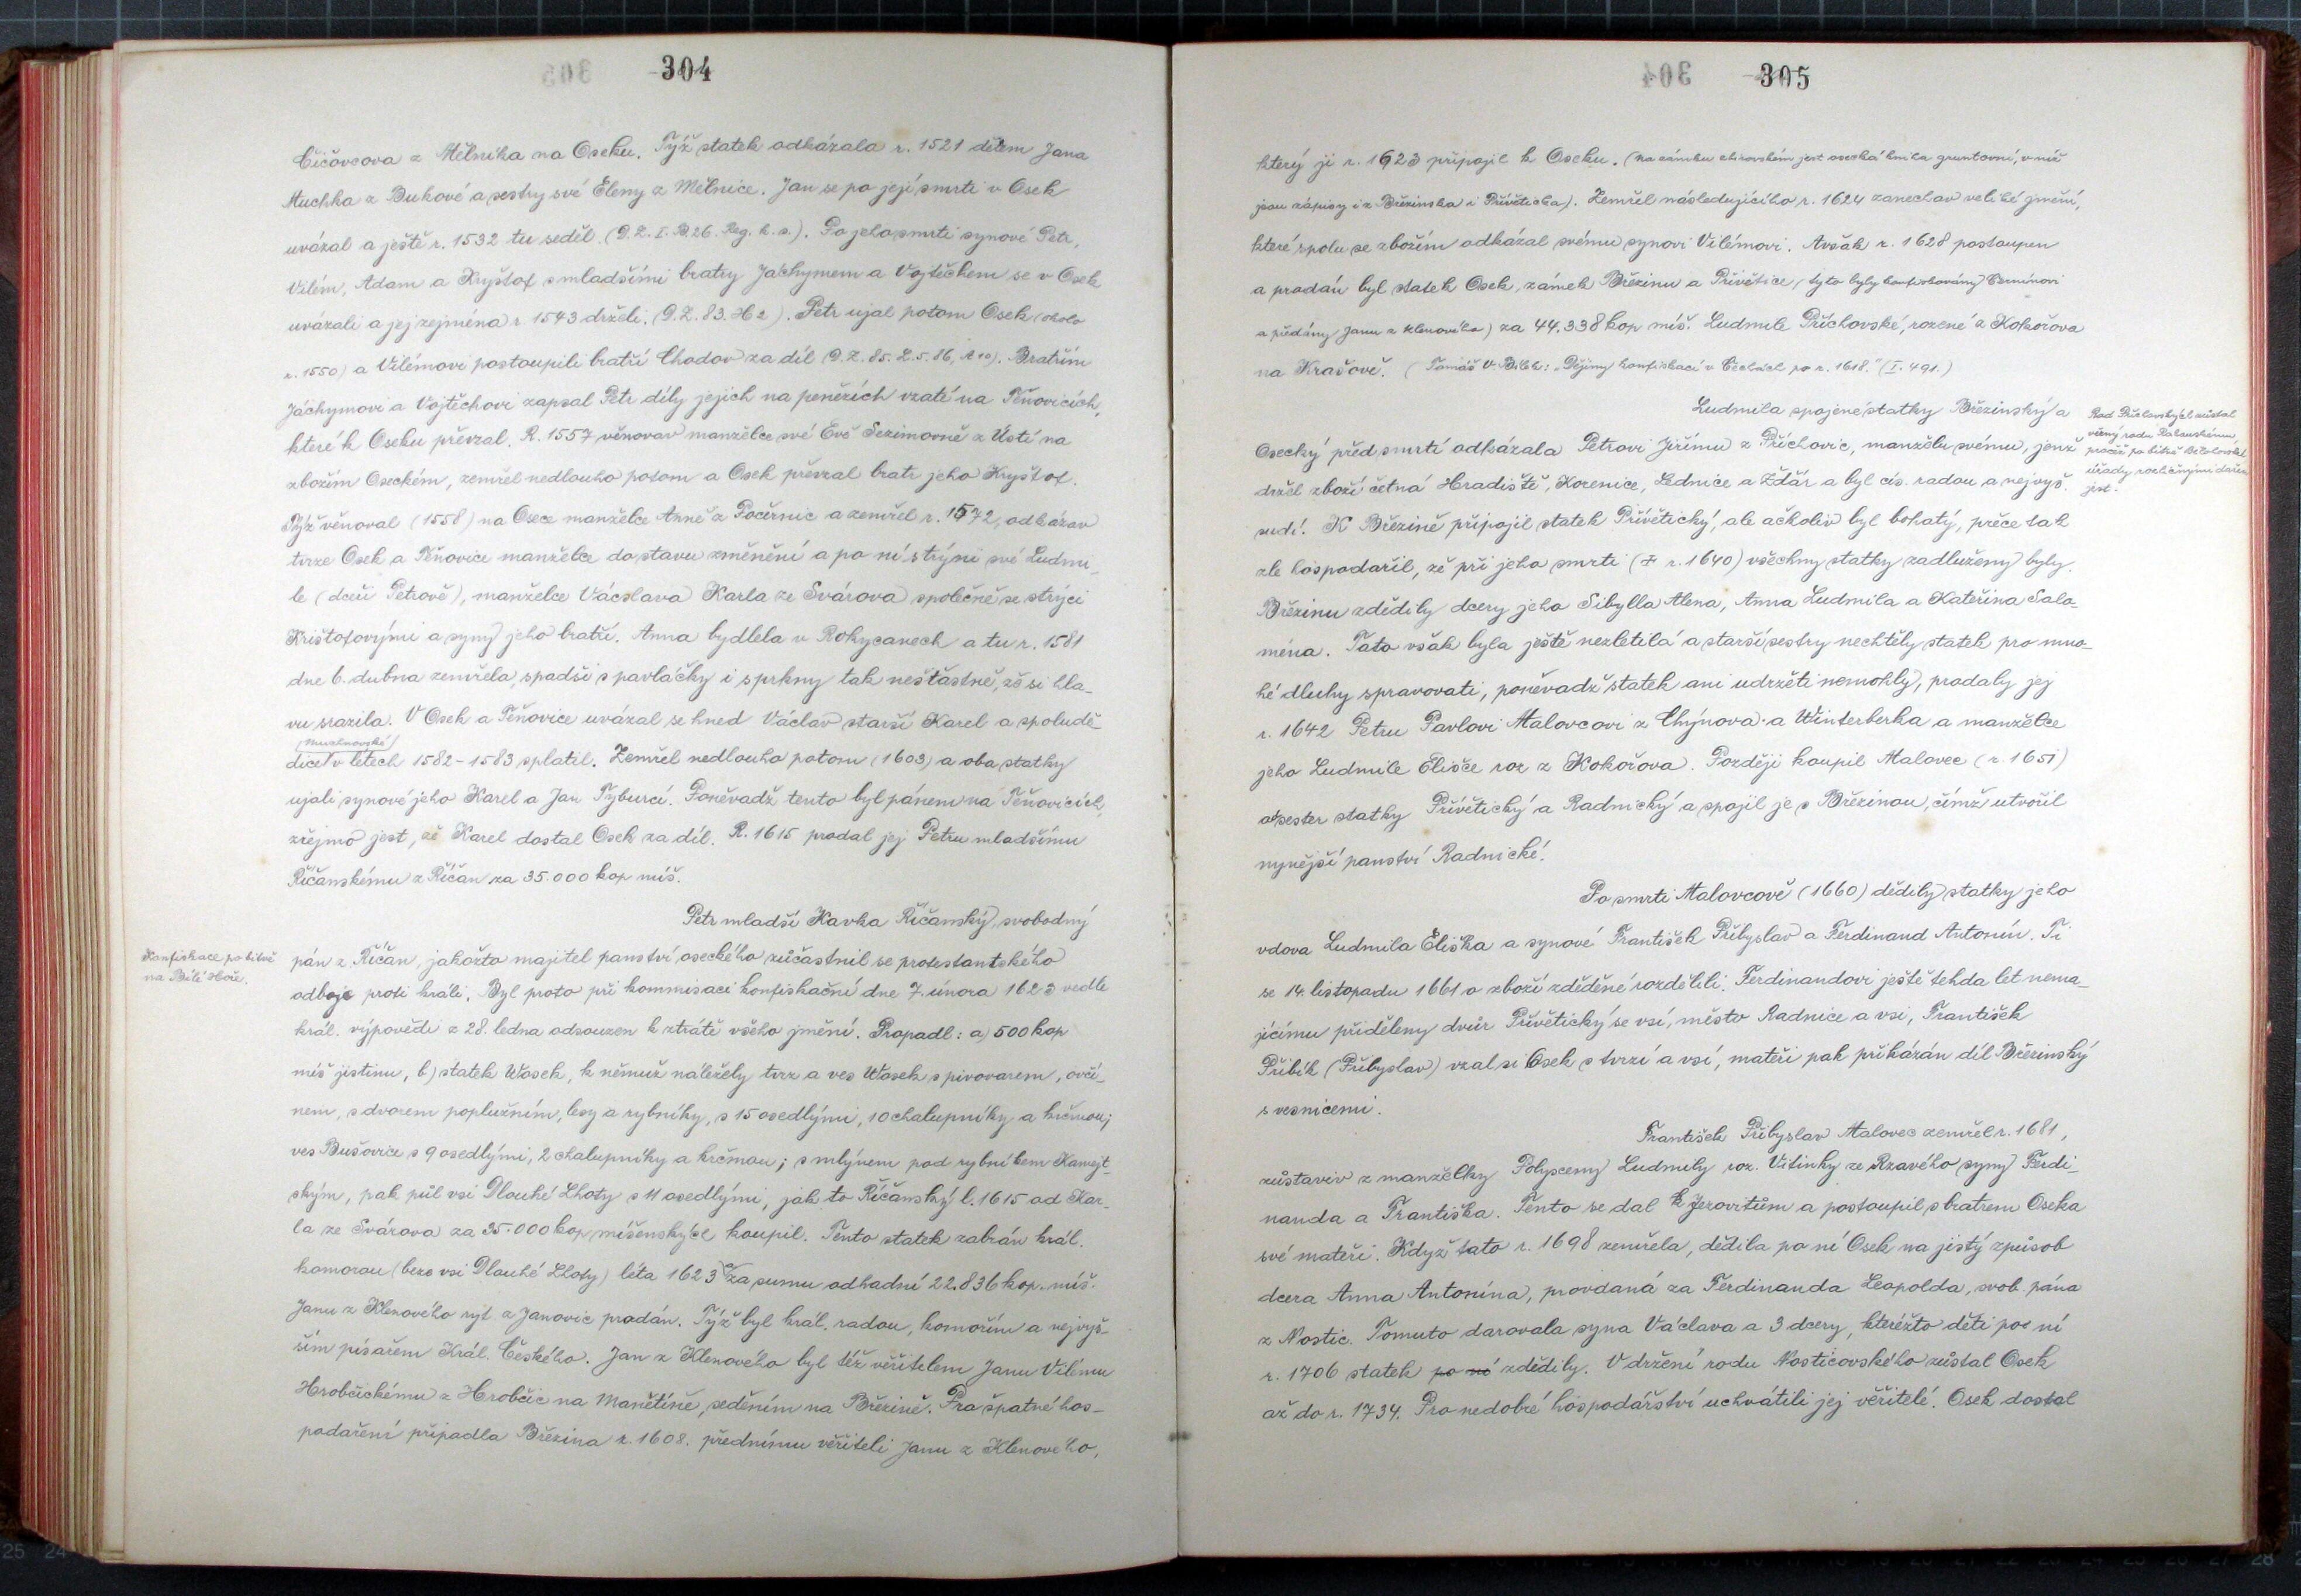 304
Čičovcova z Mělníka na Oseku. Týž statek odkázala r. 1521 dětem Jana
Muchka z Bukové a sestry své Eleny z Mělnice. Jan se po její smrti v Osek
uvázal a ještě r. 1532 tu seděl. (D. Z. I. B 26. Reg. k. s.). Po jeho smrti synové Petr,
Vilém, Adam a Kryštof s mladšími bratry Jáchymem a Vojtěchem se v Osek
uvázali a jej zejména r 1543 drželi. (D. Z. 83. H 2). Petr ujal potom Osek (okolo
r. 1550) a Vilémovi postoupili bratří Chodov za díl (D. Z. 85. L. 5. 86, A 10). Bratřím
Jáchymovi a Vojtěchovi zapsal Petr díly jejich na penězích vzatí na Těňovicích,
které k Oseku převzal. R. 1557 věnovav manželce své Evě Sezimovně z Ústí na
zbožím Oseckém, zemřel nedlouho potom a Osek převzal bratr jeho Kryštof.
Týž věnoval (1558) na Osece manželce Anně z Počernic a zemřel r. 1572, odkázav
tvrze Osek a Těňovice manželce do stavu změnění a po ní strýni své Ludmi-
le (dceři Petrově), manželce Václava Karla ze Svárova společně se strýci
Krištofovými a syny jeho bratří. Anna bydlela v Rokycanech a tu r. 1581
dne 6. dubna zemřela, spadši s pavláčky i s prkny tak nešťastně, že si hla-
vu srazila. V Osek a Těňovice uvázal se hned Václav starší Karel a spoludě-
(Muchnovské)
dice v letech 1582-1583 splatil. Zemřel nedlouho potom (1603) a oba statky
ujali synové jeho Karel a Jan Tyburcí. Poněvadž tento byl pánem na Těňovicích,
zřejmo jest, že Karel dostal Osek za díl. R. 1615 prodal jej Petru mladšímu
Říčanskému z Říčan za 35.000 kop míš.
Petr mladší Kavka Říčanský, svobodný
Konfiskace po bitvě
na Bílé Hoře.
pán z Říčan, jakožto majitel panství oseckého zúčastnil se protestantského
odboje proti králi. Byl proto při kommisaci konfiskační dne 7. února 1623 vedle
král. výpovědi z 28. ledna odsouzen k ztrátě všeho jmění. Propadl: a) 500 kop
míš jistinu, b) statek Wosek, k němuž náležely tvrz a ves Wosek s pivovarem, ovčí-
nem, s dvorem poplužním, lesy a rybníky, s 15 osedlými, 10 chalupníky a krčmou;
ves Bušovice s 9 osedlými, 2 chalupníky a krčmou; s mlýnem pod rybníkem Kamejt-
ským, pak půl vsi Dlouhé Lhoty s 11 osedlými, jak to Říčanský l. 1615 od Kar-
la ze Svárova za 35.000 kop míšenských koupil. Tento statek zabrán král.
komorou (beze vsi Dlouhé Lhoty) léta 1623 za sumu odhadní 22.836 kop. míš.
Janu z Klenového ryt. z Janovic prodán. Týž byl král. radou, komořím a nejvyš-
ším písařem Král. Českého. Jan z Klenového byl též věřitelem Janu Vilému
Hrobčickému z Hrobčic na Manětíně, seděním na Březině. Pro špatné hos-
podaření připadla Březina r. 1608. přednímu věřiteli Janu z Klenového,
305
který ji r. 1623 připojil k Oseku. (Na zámku chirovském jest osecká kniha gruntovní, v níž
jsou zápisy i z Březinska i Přívěticka). Zemřel následujícího r. 1624 zanechav veliké jmění,
které spolu se zbožím odkázal svému synovi Vilémovi. Avšak r. 1628 postoupen
a prodán byl statek Osek, zámek Březinu a Přívětice (tyto byly konfiskovány Černínovi
a předány Janu z Klenového) za 44.338 kop míš. Ludmile Příchovské, rozené z Kokořova
na Krašově. (Tomáš V. Bílek: „Dějiny konfiskací v Čechách po r. 1618." (I. 491.)
Ludmila spojené statky Březinský a
Rod Příchovských zůstal
věrný rodu Habsurskému,
pročež po bitvě Bělohorské
úřady rozličnými dařen
jest.
Osecký před smrtí odkázala Petrovi Jiřímu z Příchovic, manželu svému, jenž
držel zboží četná Hradiště, Kozenice, Lednice a Ždár a byl cís. radou a nejvyš.
sudí. K Březině připojil statek Přívětický, ale ačkoliv byl bohatý, přece tak
zle hospodařil, že při jeho smrti (✝ r. 1640) všechny statky zadluženy byly.
Březinu zdědily dcery jeho Sibylla Alena, Anna Ludmila a Kateřina Salo-
ména. Tato však byla ještě nezletilá a starší sestry nechtěly statek pro mno-
hé dluhy spravovati, poněvadž statek ani udržeti nemohly, prodaly jej
r. 1642 Petru Pavlovi Malovcovi z Chýnova a Winterberka a manželce
jeho Ludmile Elišce roz z Kokořova. Později koupil Malovec (r. 1651)
od sester statky Přívětický a Radnický a spojil je s Březinou, čímž utvořil
nynější panství Radnické.
Po smrti Malovcově (1660) dědily statky jeho
vdova Ludmila Eliška a synové František Přibyslav a Ferdinand Antonín. Ti
se 14. listopadu 1661 o zboží zděděné rozdělili. Ferdinandovi ještě tehda let nema-
jícímu přiděleny dvůr Přívětický se vsí, město Radnice a vsi, František
Přibík (Přibyslav) vzal si Osek s tvrzí a vsí, mateři pak přikázán díl Březinský
s vesnicemi.
František Přibyslav Malovec zemřel r. 1681,
zůstaviv z manželky Polyxeny Ludmily roz. Vitinky ze Rzavého syny Ferdi-
nanda a Františka. Tento se dal k Jezovitům a postoupil s bratrem Oseka
své mateři. Když tato r. 1698 zemřela, dědila po ní Osek na jistý způsob
dcera Anna Antonína, provdaná za Ferdinanda Leopolda, svob. pána
z Nostic. Tomuto darovala syna Václava a 3 dcery, kteréžto děti po ní
r. 1706 statek po ní zdědily. V držení rodu Nosticovského zůstal Osek
až do r. 1734. Pro nedobré hospodářství uchvátili jej věřitelé. Osek dostal